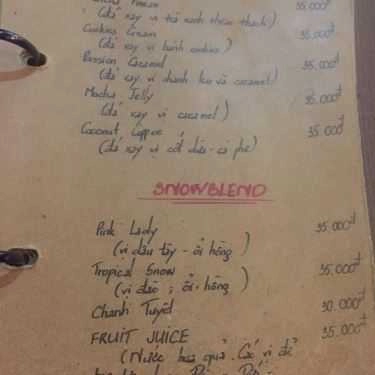 35.000đ
(đá xay vị trà xanh thạch)
Cookies Cream 35.000đ
(đá xay vị bánh cookies)
Passion Caramel 35.000đ
(đá xay vị chanh leo và caramel)
Mocha Jelly 35.000đ
(đá xay vị caramel)
Coconut Coffee 35.000đ
(đá xay vị cốt dừa - cà phê)
SNOWBLEND
Pink Lady 35.000đ
(vị dâu tây - ổi hồng)
Tropical Snow 35.000đ
(vị đào ; ổi hồng)
Chanh Tuyết 30.000đ
FRUIT JUICE 35.000đ
(Nước hoa quả. Các vị để